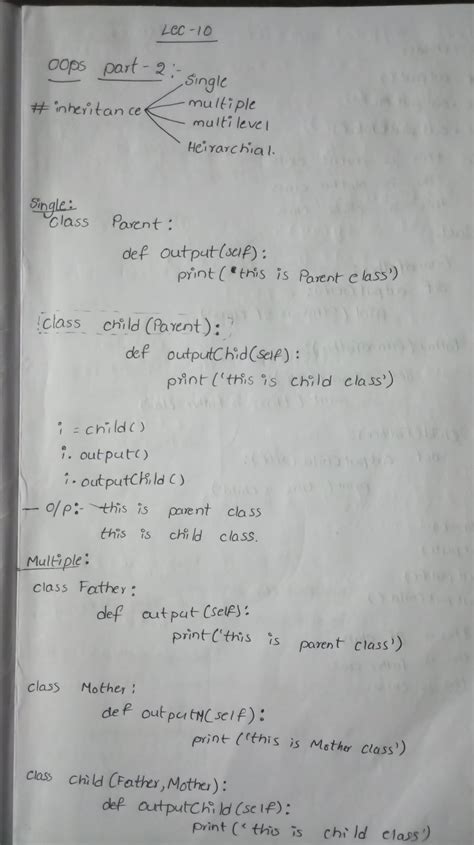 Lec-10
OOPS part-2:-
Single
# inheritance
multiple
multilevel
Heirarchial.
Single:
class Parent:
def output(self):
print('this is Parent class')
class child(Parent):
def outputChid(self):
print('this is child class')
i = child()
i.output()
i.outputChild()
- O/P:- this is parent class
this is child class.
Multiple:
class Father:
def output(self):
print('this is parent class')
class Mother:
def outputM(self):
print('this is Mother class')
class child(Father,Mother):
def outputChild(self):
print('this is child class')